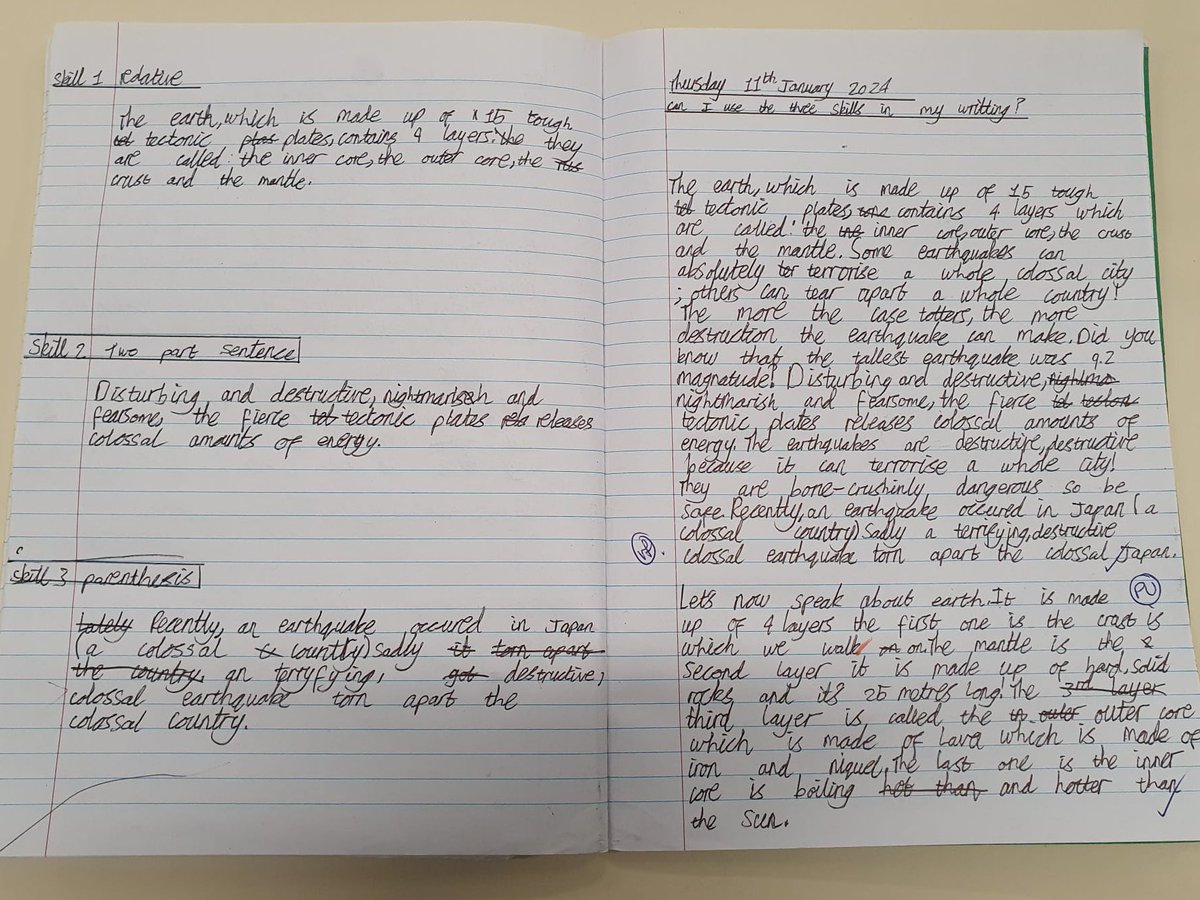 Skill 1 relative
The earth, which is made up of 15 tough
tectonic plates, contains 4 layers: they
are called: the inner core, the outer core, the
crust and the mantle.
Skill 2 Two part sentence
Disturbing and destructive, nightmarish and
fearsome, the fierce tectonic plates releases
colossal amounts of energy.
Skill 3 parenthesis
lately Recently, an earthquake occured in Japan
(a colossal country) Sadly it torn apart
the country, an terryfying, got destructive,
colossal earthquake torn apart the
colossal country.
Thursday 11th January 2024
can I use the three skills in my writting?
The earth, which is made up of 15 tough
tectonic plates, contains 4 layers which
are called: the inner core, outer core, the crust
and the mantle. Some earthquakes can
absolutely terrorise a whole colossal city
; others can tear apart a whole country!
The more the case totters, the more
destruction the earthquake can make. Did you
know that the tallest earthquake was 9.2
magnitude! Disturbing and destructive,
nightmarish and fearsome, the fierce
tectonic plates releases colossal amounts of
energy. The earthquakes are destructive, destructive
because it can terrorise a whole city!
They are bone-crushinly dangerous so be
safe. Recently, an earthquake occured in Japan (a
colossal country) Sadly a terrifying, destructive
colossal earthquake torn apart the colossal Japan.
Let's now speak about earth. It is made PU
up of 4 layers the first one is the crast is
which we walk on. The mantle is the
second layer it is made up of hard, solid
rocks and its 25 metres long. The 3rd layer
third layer is called the outer outer core
which is made of Lava which is made of
iron and niquel. The last one is the inner
core is boiling hot than and hotter than
the sun.